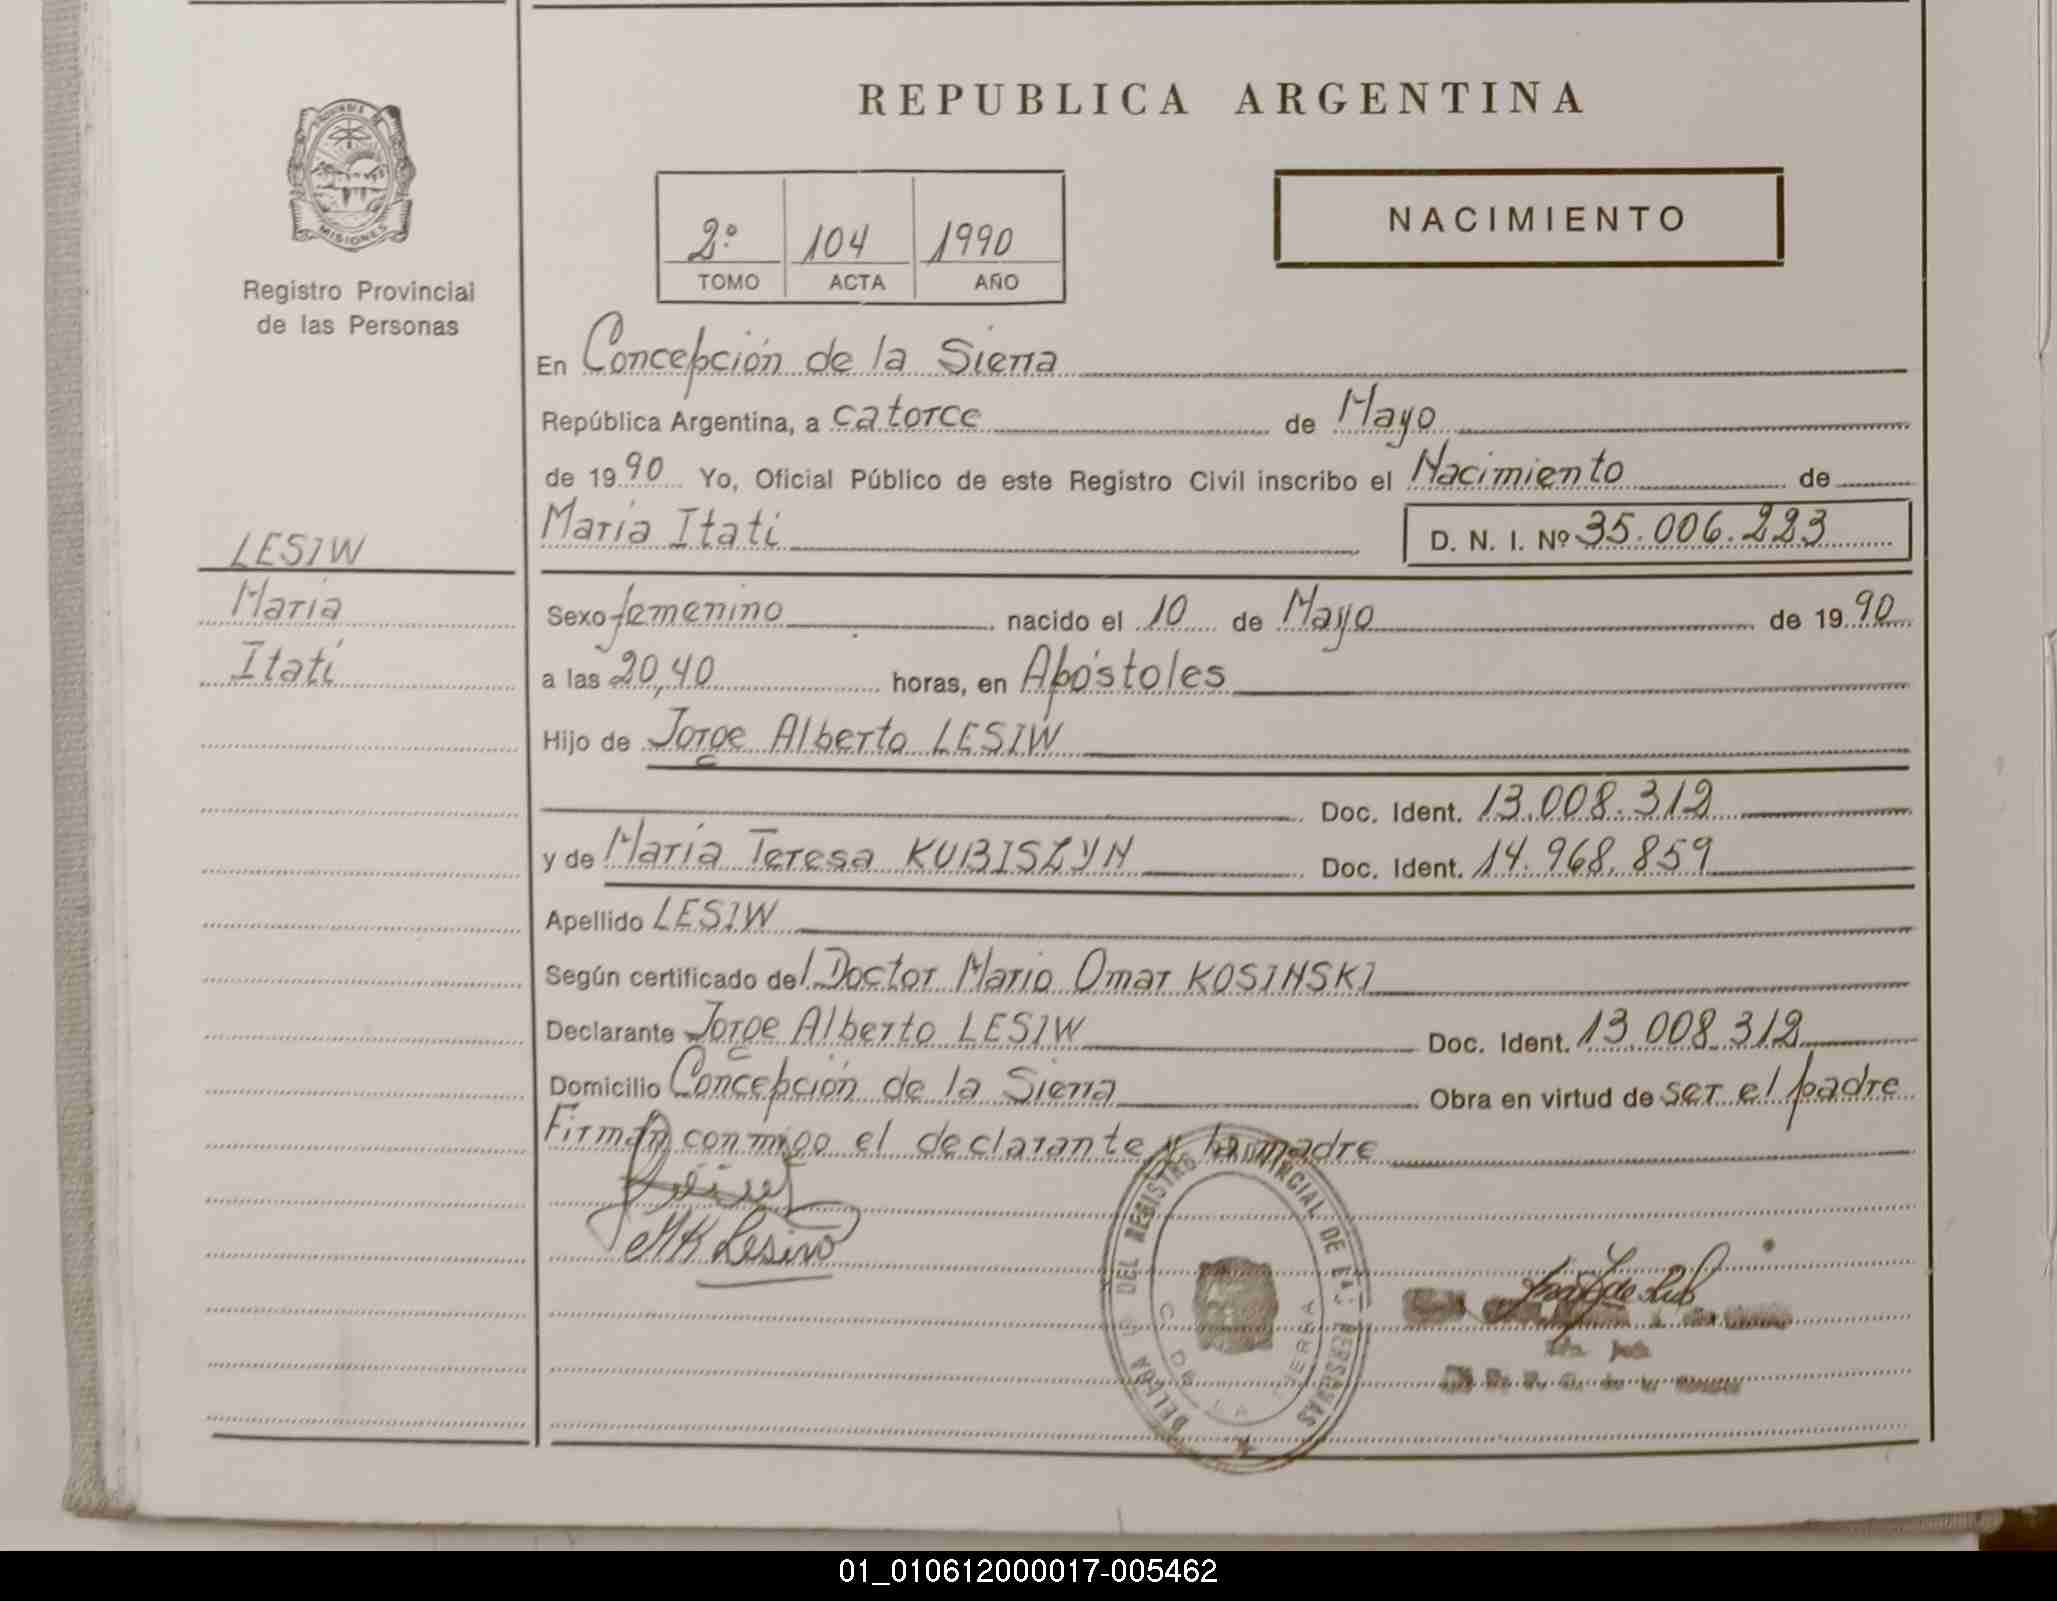 REPUBLICA ARGENTINA
MISIONES
Registro Provincial
de las Personas
2º 104 1990
TOMO ACTA AÑO
NACIMIENTO
En Concepción de la Sierra
República Argentina, a catorce de Mayo
de 1990 Yo, Oficial Público de este Registro Civil inscribo el Nacimiento de
María Itatí D. N. I. Nº 35.006.223
LESIW
María
Itatí
Sexo femenino nacido el 10 de Mayo de 1990
a las 20,40 horas, en Apóstoles
Hijo de Jorge Alberto LESIW
Doc. Ident. 13.008.312
y de María Teresa KUBISZYN Doc. Ident. 14.968.859
Apellido LESIW
Según certificado del Doctor Mario Omar KOSINSKI
Declarante Jorge Alberto LESIW Doc. Ident. 13.008.312
Domicilio Concepción de la Sierra Obra en virtud de ser el padre
Firman conmigo el declarante y la madre
MK Lesiw
DEL REGISTRO PROVINCIAL DE LAS PERSONAS
C. DE LA SIERRA
01_010612000017-005462